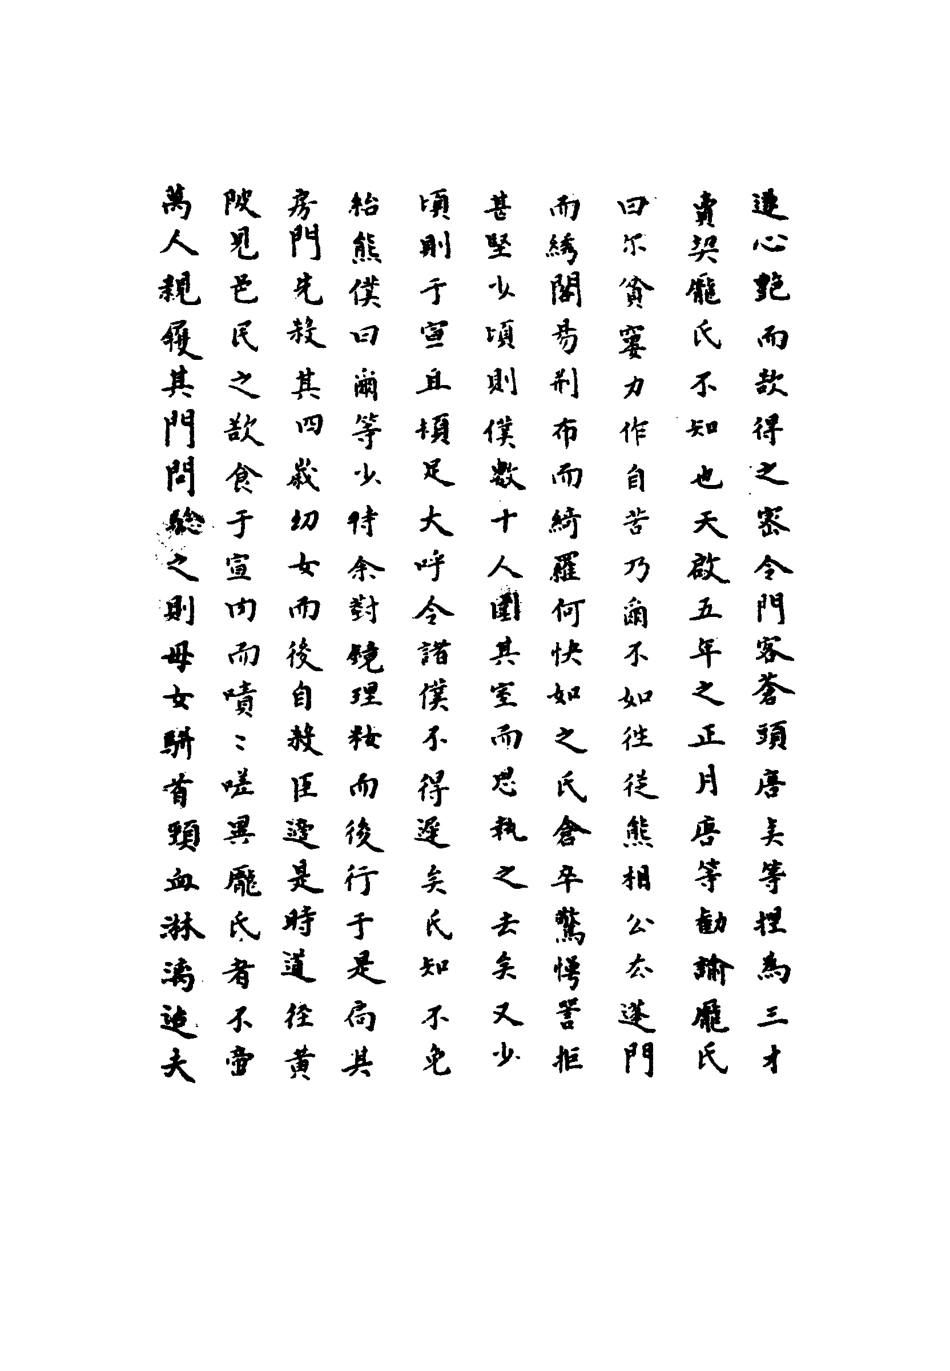 遂心艷而欲得之密令門客蒼頭唐美等捏為三才
賣契龐氏不知也天啟五年之正月唐等勸諭龐氏
曰尔貧窶力作自苦乃爾不如徃從熊相公去蓬門
而綉閣易荆布而綺羅何快如之氏倉卒驚愕詈拒
甚堅少頃則僕數十人圍其室而思執之去矣又少
頃則于宣且頓足大呼令諸僕不得遲矣氏知不免
紿熊僕曰爾等少待余對鏡理妝而後行于是扃其
房門先殺其四歲幼女而後自殺臣遼是時道徑黄
陂見邑民之欲食于宣肉而嘖〻嗟異龐氏者不啻
萬人親履其門問驗之則母女駢首頸血淋漓迨夫